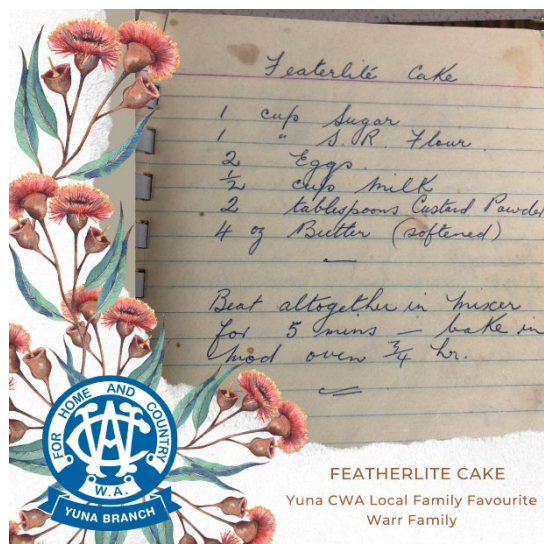 Featerlité Cake
1 cup Sugar
1 " S.R. Flour
2 Eggs
1/2 cup Milk
2 tablespoons Custard Powder
4 oz Butter (softened)
Beat altogether in mixer
for 5 mins — bake in
mod oven 3/4 hr.
FOR HOME AND COUNTRY
CWA
W.A.
YUNA BRANCH
FEATHERLITE CAKE
Yuna CWA Local Family Favourite
Warr Family